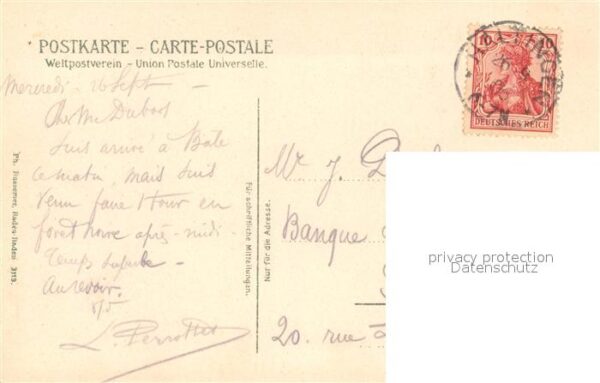 POSTKARTE – CARTE-POSTALE
Weltpostverein – Union Postale Universelle.
Mercredi - 16 Sept -
Cher Mr Dubois
Suis arrivé à Bâle
ce matin, mais suis
venu faire 1 tour en
forêt noire après-midi -
Temps superbe -
Au revoir.
L. Perrottet
Ph. Bussemer, Baden-Baden 3113.
Für schriftliche Mitteilungen.
Nur für die Adresse.
10 10
DEUTSCHES REICH
Mr J.
Banque
20. rue
privacy protection
Datenschutz